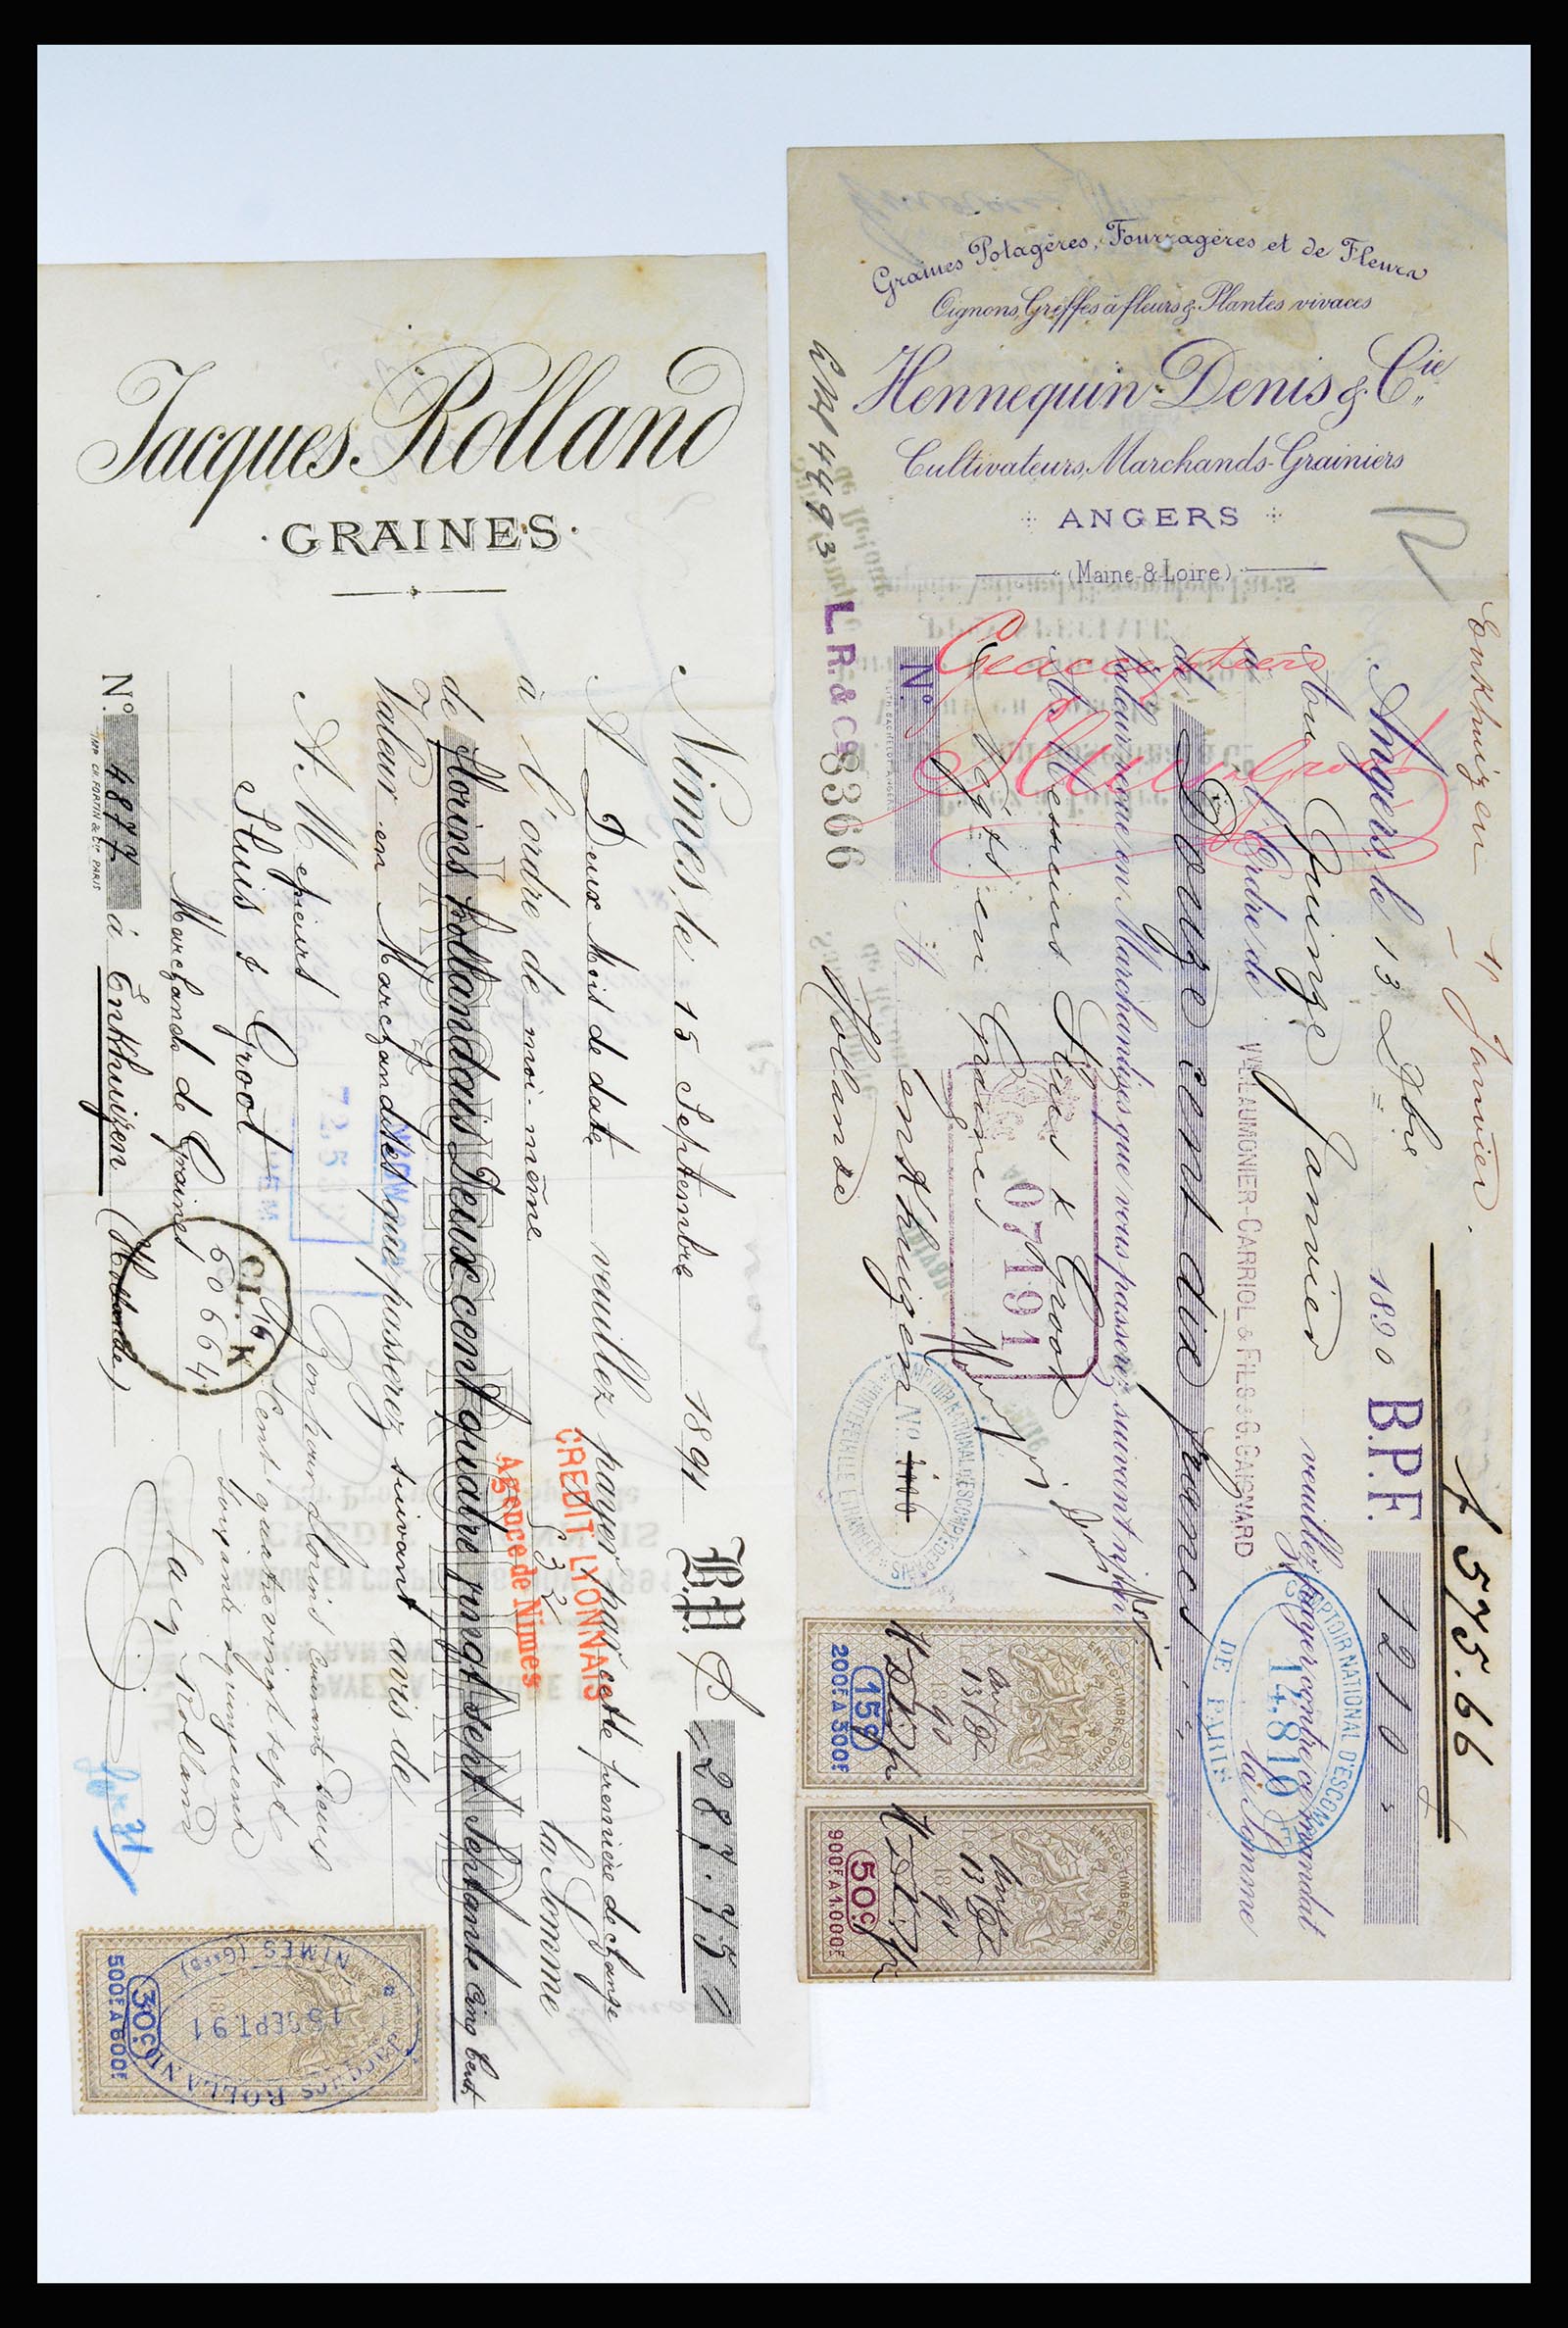 Jacques Rolland
· GRAINES ·
Nîmes, le 15 Septembre 1891 B.P. 287.75
A Deux Mois de date veuillez payer par cette première de change
à l'ordre de moi-même la Somme
de florins hollandais Deux cent quatre vingt sept Septante cinq Cent.
Valeur en Marchandises que passerez suivant avis de
JACQUES ROLLAND
A. M essieurs
Sluis & Groot
Marchands de Graines
N.º 4877 à Enkhuizen (Hollande)
IMP. CH. FORTIN & Cie PARIS
Bon pour florins courant Deux
Cent quatre vingt sept
Soixante quinze cent
Jacq Rolland
CREDIT LYONNAIS
Agence de Nimes
CL. K
60664
JACQUES ROLLAND
NIMES (GARD)
15 SEPT. 91
30c
500F. A 600F.
Graines Potagères, Fourragères et de Fleurs
Oignons, Griffes à fleurs & Plantes vivaces
Hennequin-Denis & Cie
Cultivateurs, Marchands-Grainiers
ANGERS
(Maine & Loire)
Enkhuizen Janvier.
f 575.66
Angers, le 13 Xbre 1890 B.P.F. 1210
Au Quinze Janvier veuillez payer contre ce mandat
à l'Ordre de VVE LAUMONIER-CARRIOL & FILS & G. GAIGNARD la Somme
de Douze cent dix francs
Valeur reçue en Marchandises que vous passerez suivant
A Messieurs Sluis & Groot
Nég.ts en Graines
N.º
enkhuizen
Hollande
4493
L.R. & Co 8366
07191
COMPTOIR NATIONAL D'ESCOMPTE DE PARIS
14,810
COMPTOIR NATIONAL D'ESCOMPTE DE PARIS
15c
200F. A 300F.
50c
900F. A 1.000F.